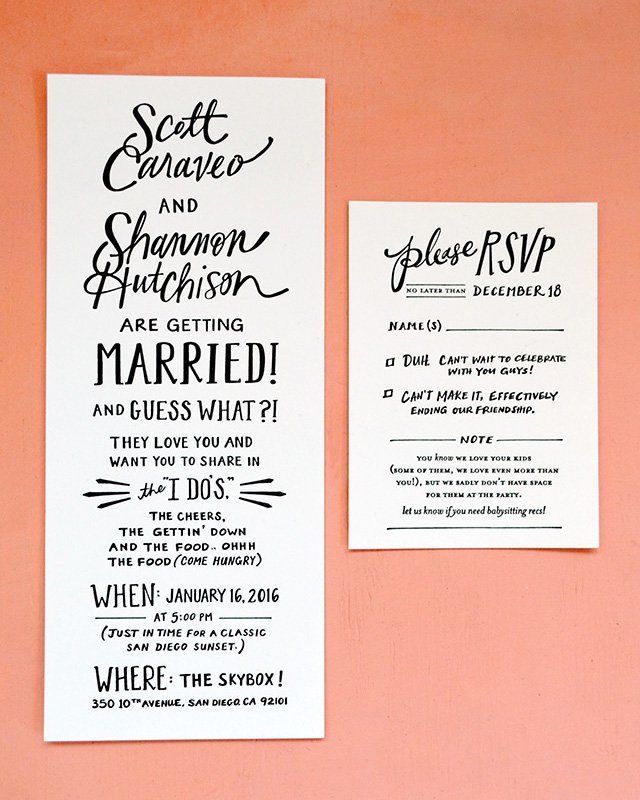 Scott
Caraveo
AND
Shannon
Hutchison
ARE GETTING
MARRIED!
AND GUESS WHAT?!
THEY LOVE YOU AND
WANT YOU TO SHARE IN
the "I DO'S."
THE CHEERS,
THE GETTIN' DOWN
AND THE FOOD.. OHHH
THE FOOD (COME HUNGRY)
WHEN: JANUARY 16, 2016
AT 5:00 PM
(JUST IN TIME FOR A CLASSIC
SAN DIEGO SUNSET.)
WHERE: THE SKYBOX!
350 10TH AVENUE, SAN DIEGO, CA 92101
please RSVP
NO LATER THAN DECEMBER 18
NAME(S)
DUH. CAN'T WAIT TO CELEBRATE
WITH YOU GUYS!
CAN'T MAKE IT, EFFECTIVELY
ENDING OUR FRIENDSHIP.
NOTE
YOU know WE LOVE YOUR KIDS
(SOME OF THEM, WE LOVE EVEN MORE THAN
YOU!), BUT WE SADLY DON'T HAVE SPACE
FOR THEM AT THE PARTY.
let us know if you need babysitting recs!